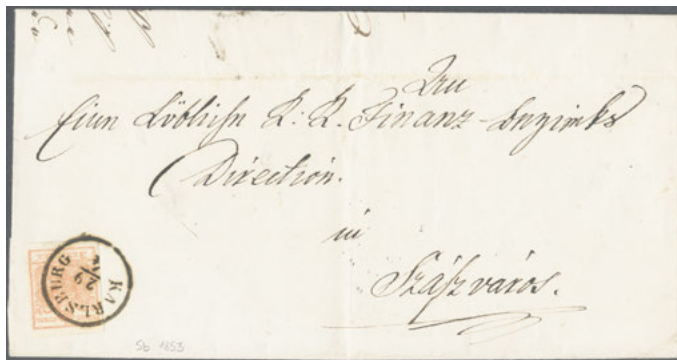 An
Eine Löbliche K: K. Finanz-Bezirks
Direction.
in
Szászváros.
KARLSBURG
2/9
Sb 1853